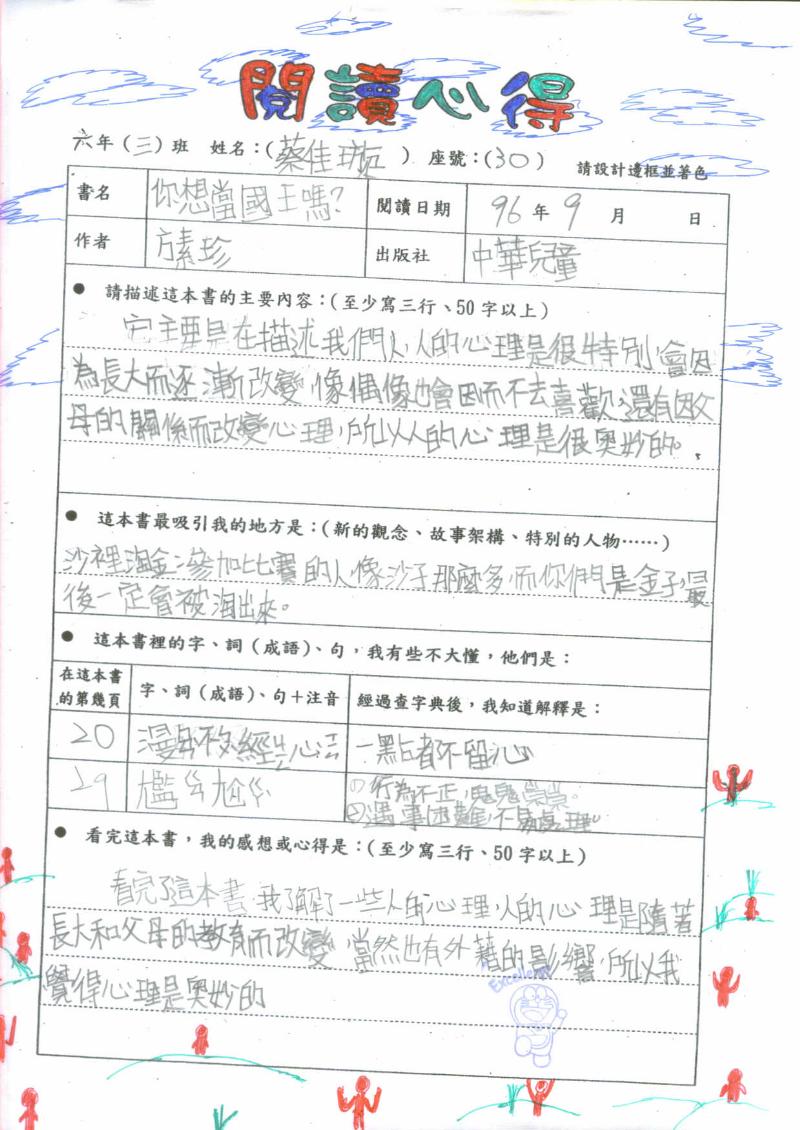 閱讀心得
六年(三)班 姓名:(蔡佳璇) 座號:(30) 請設計邊框並著色
書名 你想當國王嗎? 閱讀日期 96年9月 日
作者 方素珍 出版社 中華兒童
● 請描述這本書的主要內容:(至少寫三行、50字以上)
它主要是在描述我們人,人的心理是很特別,會因
為長大而逐漸改變,像偶像也會因而不去喜歡,還有因父
母的關係而改變心理,所以人的心理是很奧妙的。
● 這本書最吸引我的地方是:(新的觀念、故事架構、特別的人物……)
沙裡淘金:參加比賽的人像沙子那麼多,而你們是金子,最
後一定會被淘出來。
● 這本書裡的字、詞(成語)、句,我有些不大懂,他們是:
在這本書的第幾頁 字、詞(成語)、句+注音 經過查字典後,我知道解釋是:
20 漫不經心 一點都不留心
29 尷ㄍ尬ㄍ (1)行為不正,鬼鬼祟祟。
(2)遇事困難,不易處理。
● 看完這本書,我的感想或心得是:(至少寫三行、50字以上)
看完了這本書,我了解了一些人的心理,人的心理是隨著
長大和父母的教育而改變,當然也有外藉的影響,所以我
覺得心理是奧妙的
Excellent